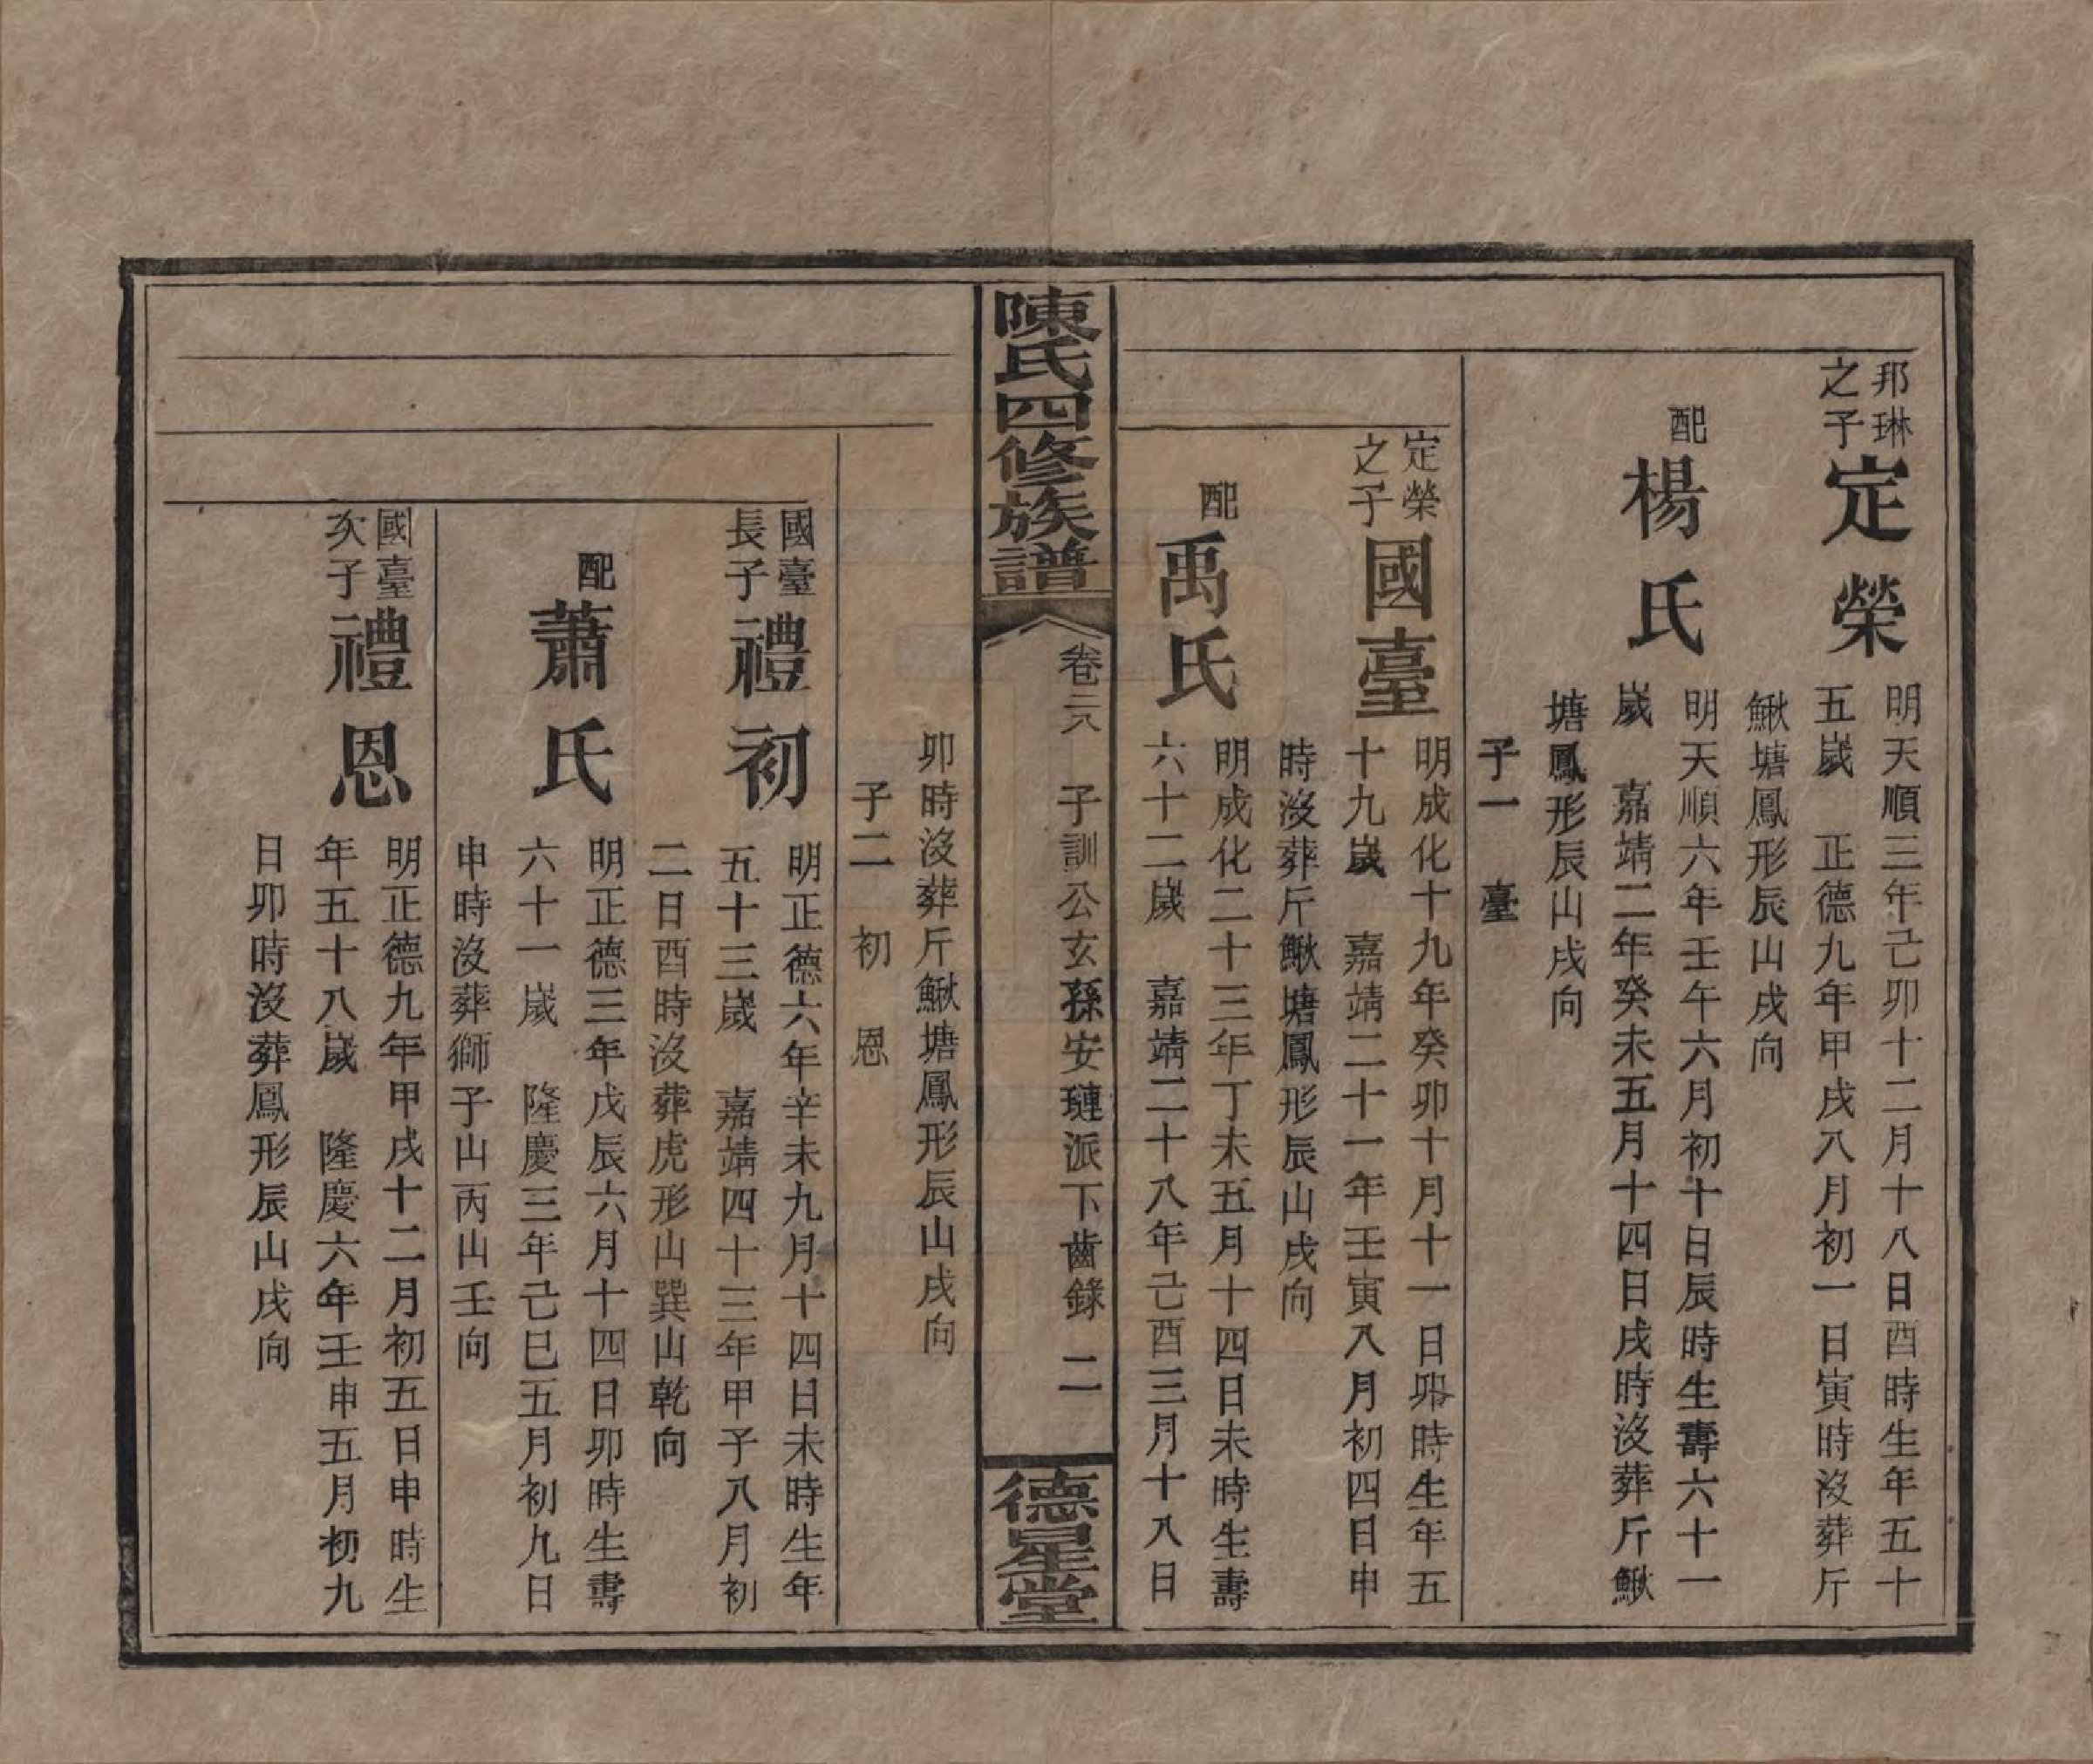 邦琳之子
定榮
明天順三年己卯十二月十八日酉時生年五十
五嵗　正德九年甲戌八月初一日寅時沒葬斤
鰍塘鳳形辰山戌向
配
楊氏
明天順六年壬午六月初十日辰時生壽六十一
嵗　嘉靖二年癸未五月十四日戌時沒葬斤鰍
塘鳳形辰山戌向
子一　臺
定榮之子
國臺
明成化十九年癸卯十月十一日卯時生年五
十九嵗　嘉靖二十一年壬寅八月初四日申
時沒葬斤鰍塘鳳形辰山戌向
配
禹氏
明成化二十三年丁未五月十四日未時生壽
六十二嵗　嘉靖二十八年己酉三月十八日
陳氏四修族譜
卷三八　子訓公玄孫安璉派下齒錄　二
德星堂
卯時沒葬斤鰍塘鳳形辰山戌向
子二　初　恩
國臺長子
禮初
明正德六年辛未九月十四日未時生年
五十三嵗　嘉靖四十三年甲子八月初
二日酉時沒葬虎形山巽山乾向
配
蕭氏
明正德三年戊辰六月十四日卯時生壽
六十一嵗　隆慶三年己巳五月初九日
申時沒葬獅子山丙山壬向
國臺次子
禮恩
明正德九年甲戌十二月初五日申時生
年五十八嵗　隆慶六年壬申五月初九
日卯時沒葬鳳形辰山戌向